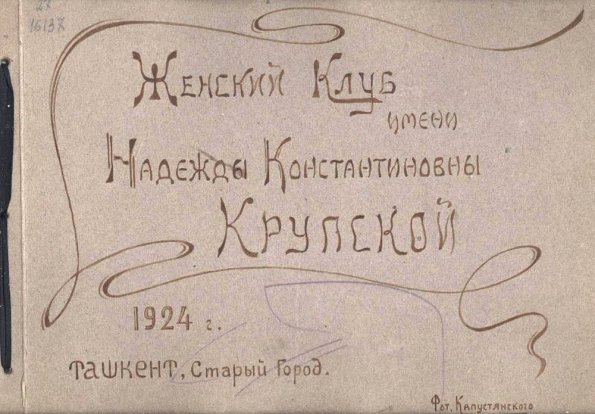 16137
Женский Клуб
имени
Надежды Константиновны
Крупской
1924 г.
Ташкент, Старый Город.
Фот. Капустянского